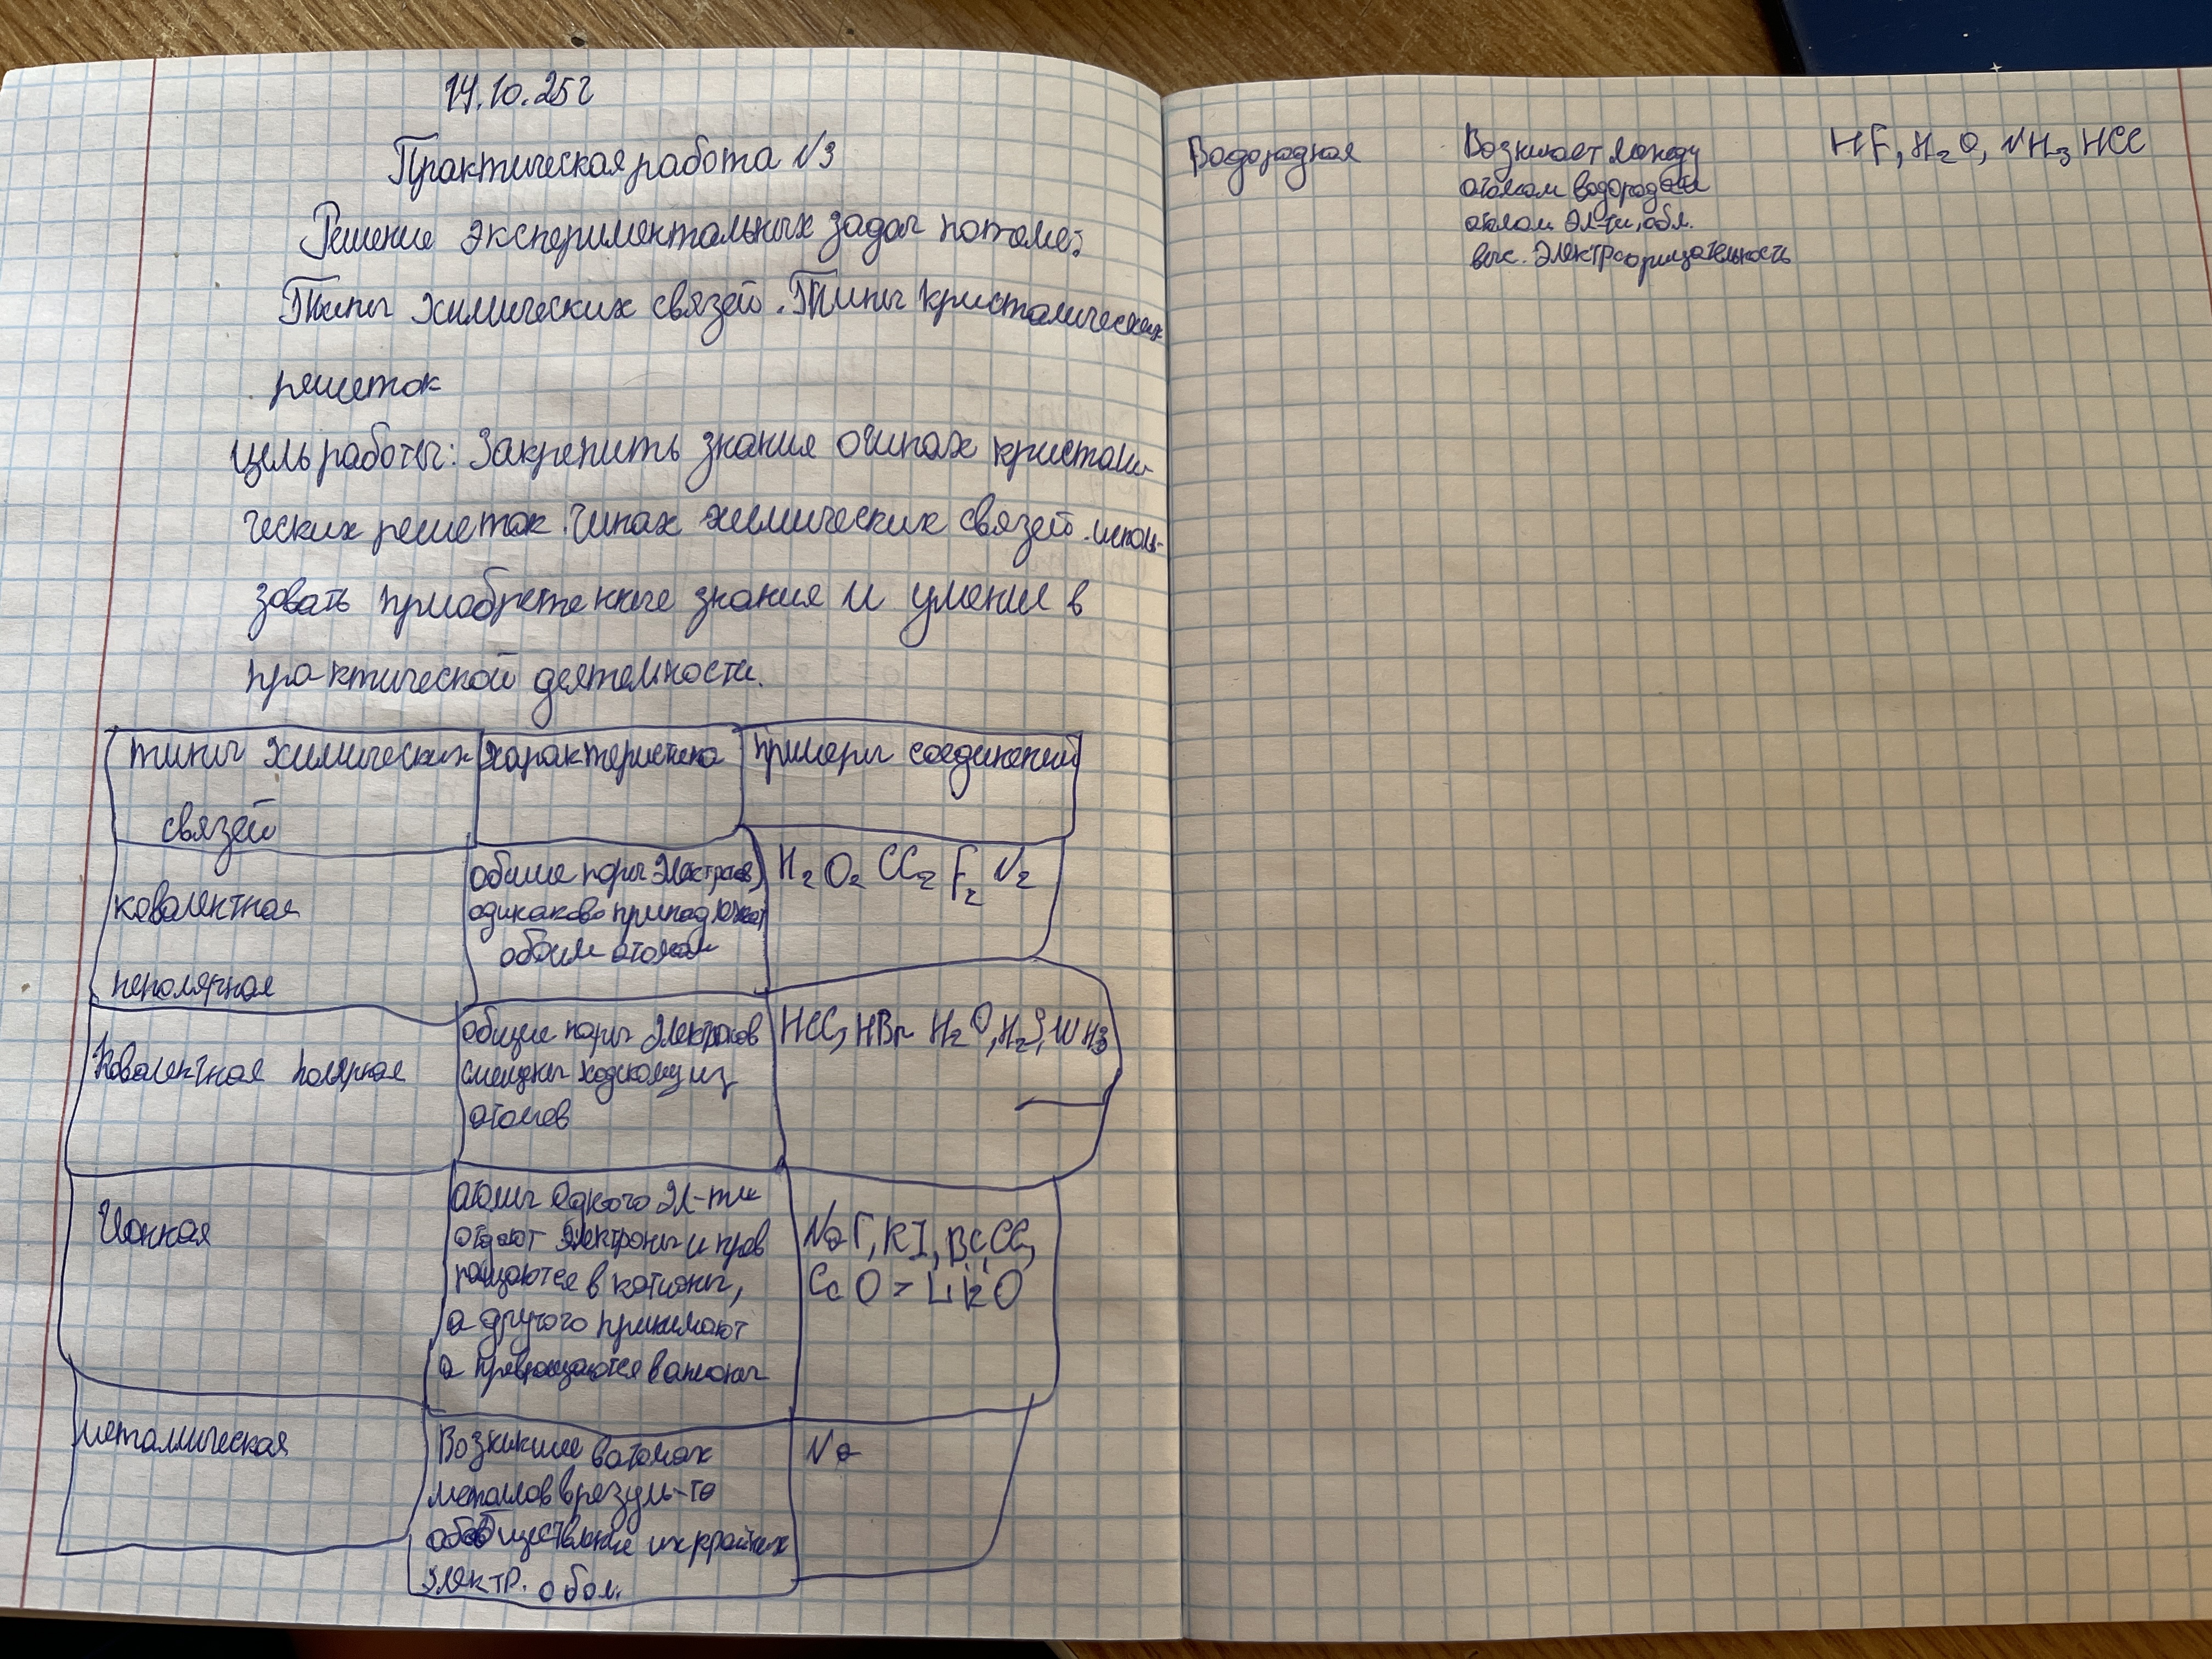 14.10.25г
Практическая работа №3
Решение экспериментальных задач по теме:
Типы химических связей. Типы кристалических
решеток
Цель работы: Закрепить знания о типах кристали-
ческих решеток. типах химических связей. исполь-
зовать приобретенные знания и умения в
практической деятельности.
типы химических связей
характеристика
примеры соединений
ковалентная
неполярная
общие пары электронов
одинаково принадлежат
обоим атомам
H2 O2 Cl2 F2 N2
Ковалентная полярная
общие пары электронов
смещены к одному из
атомов
HCl, HBr H2O, H2S, NH3
Ионная
атомы одного эл-та
отдают электроны и прев
ращаются в катионы,
а другого принимают
а превращаются в анионы
NaF, KI,
CaO, Li2O
металлическая
Возникшие в атомах
металлов в резуль-те
обобществление их крайних
электр. обол.
Na
Водородная
Возникает между
атомом водорода и
атомом эл-та, обл.
выс. электроорицательность
HF, H2O, NH3 HCl